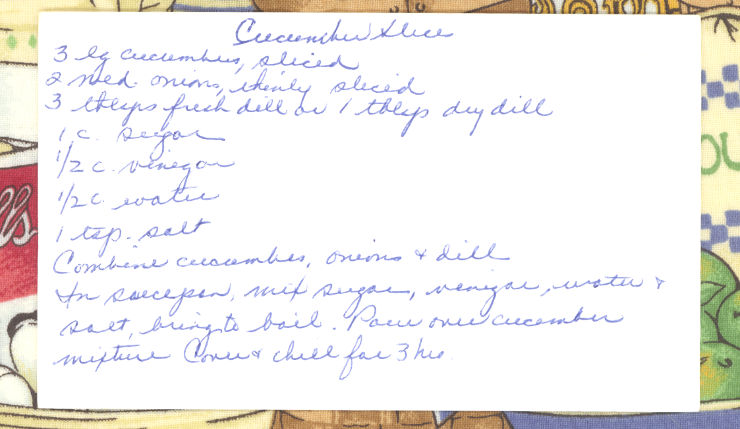 Cucumber Slice
3 lg cucumbers, sliced
2 med. onions, thinly sliced
3 tblsps fresh dill or 1 tblsp dry dill
1 c. sugar
1/2 c. vinegar
1/2 c water
1 tsp. salt
Combine cucumbers, onions & dill
In saucepan, mix sugar, vinegar, water &
salt, bring to boil. Pour over cucumber
mixture Cover & chill for 3 hrs.